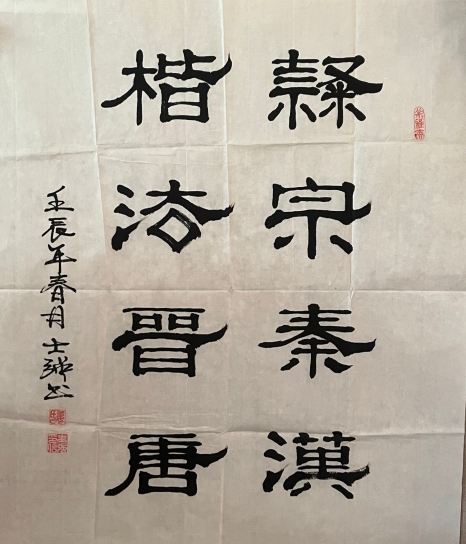 隸宗秦漢
楷法晉唐
壬辰年春月士骅书